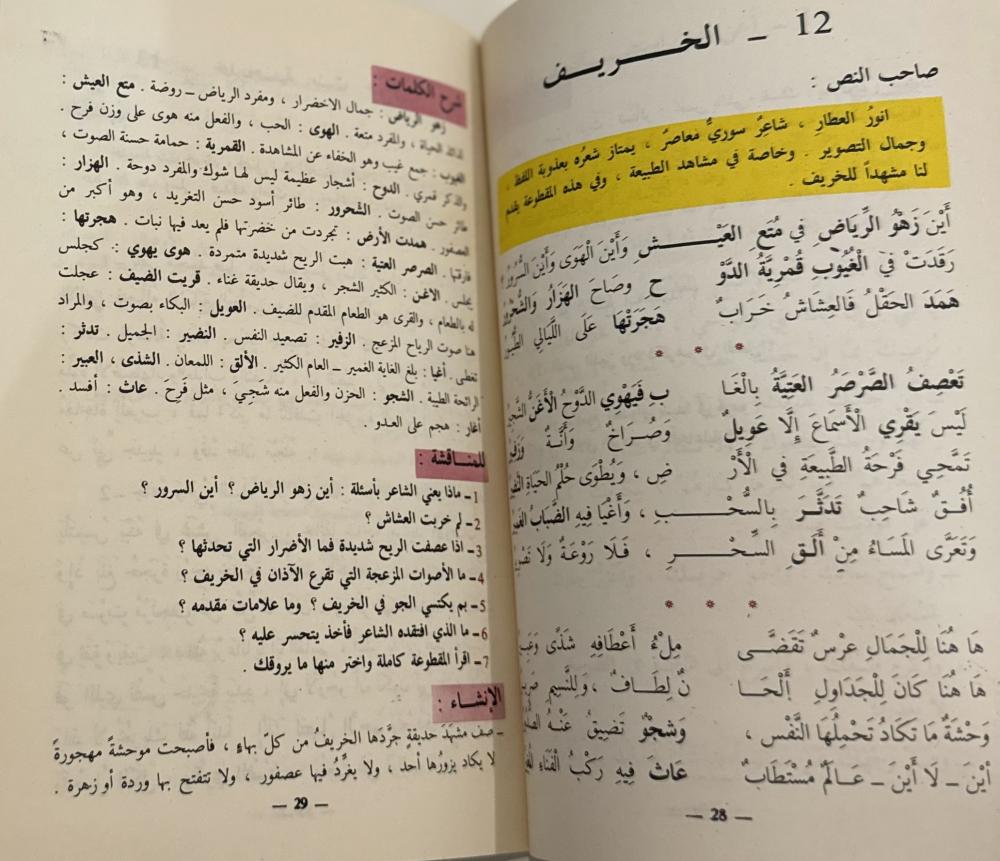 12 ـ الخـــريـــف
صاحب النص :
انورُ العطار ، شاعرٌ سوريٌّ معاصرٌ ، يمتاز شعرُه بعذوبة اللفظ
وجمال التصوير . وخاصة في مشاهد الطبيعة ، وفي هذه المقطوعة يقدم
لنا مشهداً للخريف .
أَيْنَ زَهْوُ الرِّيَاضِ فِي مُتَعِ العَيْـــشِ وَأَيْنَ الْهَوَى وَأَيْنَ السُّرُورُ
رَقَدَتْ فِي الْغُيُوبِ قُمْرِيَّةُ الدَّوْ حِ وصَاحَ الهَزَارُ وَالشُّحْرُورُ
هَمَدَ الحَقْلُ فَالعِشَاشُ خَرَابٌ هَجَرَتْهَا عَلَى اللَّيَالِي
* * *
تَعْصِفُ الصَّرْصَرُ العَتِيَّةُ بِالْغَا بِ فَيَهْوِي الدَّوْحُ الأَغَنُّ
لَيْسَ يَقْرِي الْأَسْمَاعَ إِلَّا عَوِيلٌ وَصُرَاخٌ وَأَنَّةٌ
تَمَّحِي فَرْحَةُ الطَّبِيعَةِ فِي الْأَرْ ضِ ، وَيُطْوَى حُلْمُ الحَيَاةِ
أُفُقٌ شَاحِبٌ تَدَثَّرَ بِالسُّحْـــبِ ، وَأَغْيَا فِيهِ الضَّبَابُ
وَتَعَرَّى المَسَاءُ مِنْ أَلَقِ السِّحْـــرِ ، فَلَا رَوْعَةٌ وَلَا
* * *
هَا هُنَا لِلْجَمَالِ عُرْسٌ تَقَضَّى مِلْءُ أَعْطَافِهِ شَذًى
هَا هُنَا كَانَ لِلْجَدَاوِلِ أَلْحَا نٌ لِطَافٌ ، وَلِلنَّسِيمِ
وَحْشَةٌ مَا تَكَادُ تَحْمِلُهَا النَّفْسُ ، وَشَجْوٌ تَضِيقُ عَنْهُ
أَيْنَ ـ لَا أَيْنَ ـ عَالَمٌ مُسْتَطَابٌ عَاثَ فِيهِ رَكْبُ الْفَنَاءِ
— 28 —
شرح الكلمات :
زهو الرياض : جمال الاخضرار ، ومفرد الرياض ـ روضة . متع العيش :
لذائذ الحياة ، والمفرد متعة . الهوى : الحب ، والفعل منه هوى على وزن فرح .
الغيوب : جمع غيب وهو الخفاء عن المشاهدة . القمرية : حمامة حسنة الصوت ،
والذكر قمري . الدوح : أشجار عظيمة ليس لها شوك والمفرد دوحة . الهزار :
طائر حسن الصوت . الشحرور : طائر أسود حسن التغريد ، وهو أكبر من
العصفور . همدت الأرض : تجردت من خضرتها فلم يعد فيها نبات . هجرتها :
فارقتها . الصرصر العتية : هبت الريح شديدة متمردة . هوى يهوي : كجلس
يجلس . الاغن : الكثير الشجر ، ويقال حديقة غناء . قريت الضيف : عجلت
له بالطعام ، والقرى هو الطعام المقدم للضيف . العويل : البكاء بصوت ، والمراد
هنا صوت الرياح المزعج . الزفير : تصعيد النفس . النضير : الجميل . تدثر :
تغطى . أغيا : بلغ الغاية الغمير ـ العام الكثير . الألق : اللمعان . الشذى ، العبير :
الرائحة الطيبة . الشجو : الحزن والفعل منه شَجِيَ ، مثل فَرِحَ . عاث : أفسد .
أغار : هجم على العدو .
للمناقشة :
1ـ ماذا يعني الشاعر بأسئلة : أين زهو الرياض ؟ أين السرور ؟
2ـ لم خربت العشاش ؟
3ـ اذا عصفت الريح شديدة فما الأضرار التي تحدثها ؟
4ـ ما الأصوات المزعجة التي تقرع الآذان في الخريف ؟
5ـ بم يكتسي الجو في الخريف ؟ وما علامات مقدمه ؟
6ـ ما الذي افتقده الشاعر فأخذ يتحسر عليه ؟
7ـ اقرأ المقطوعة كاملة واختر منها ما يروقك .
الإنشاء :
ـ صف مشهَدَ حديقةٍ جرَّدَها الخريفُ من كلّ بهاءٍ ، فأصبحت موحشةً مهجورةً
لا يكاد يزورُها أحد ، ولا يغرِّدُ فيها عصفور ، ولا تتفتح بها وردة أو زهرة .
— 29 —